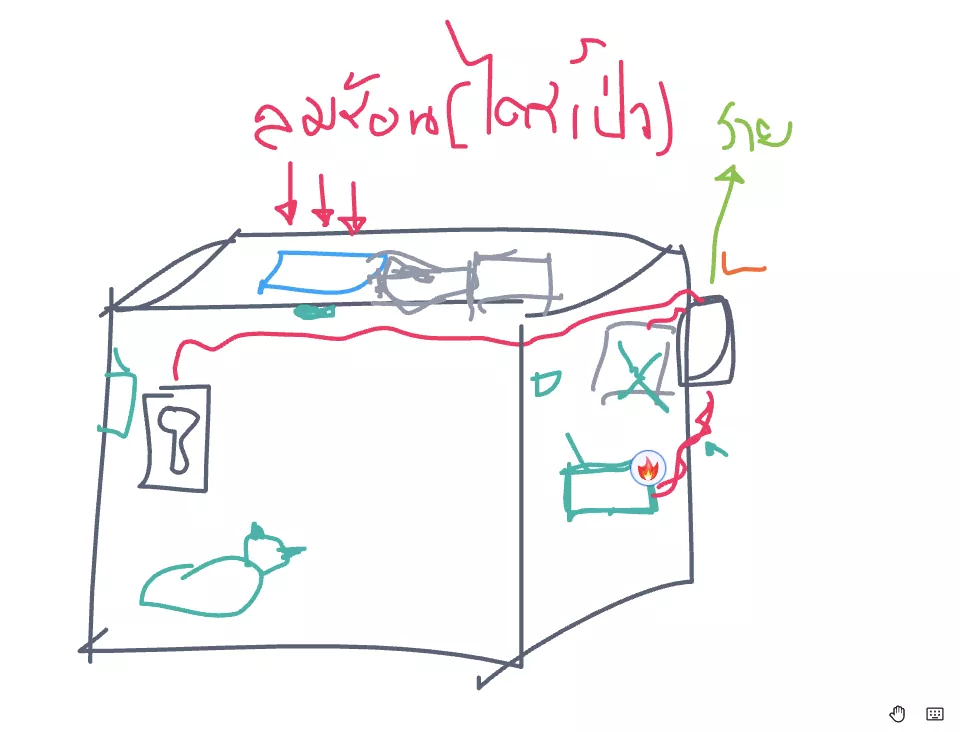 ลมร้อน(ไดร์เป่า)
ราย